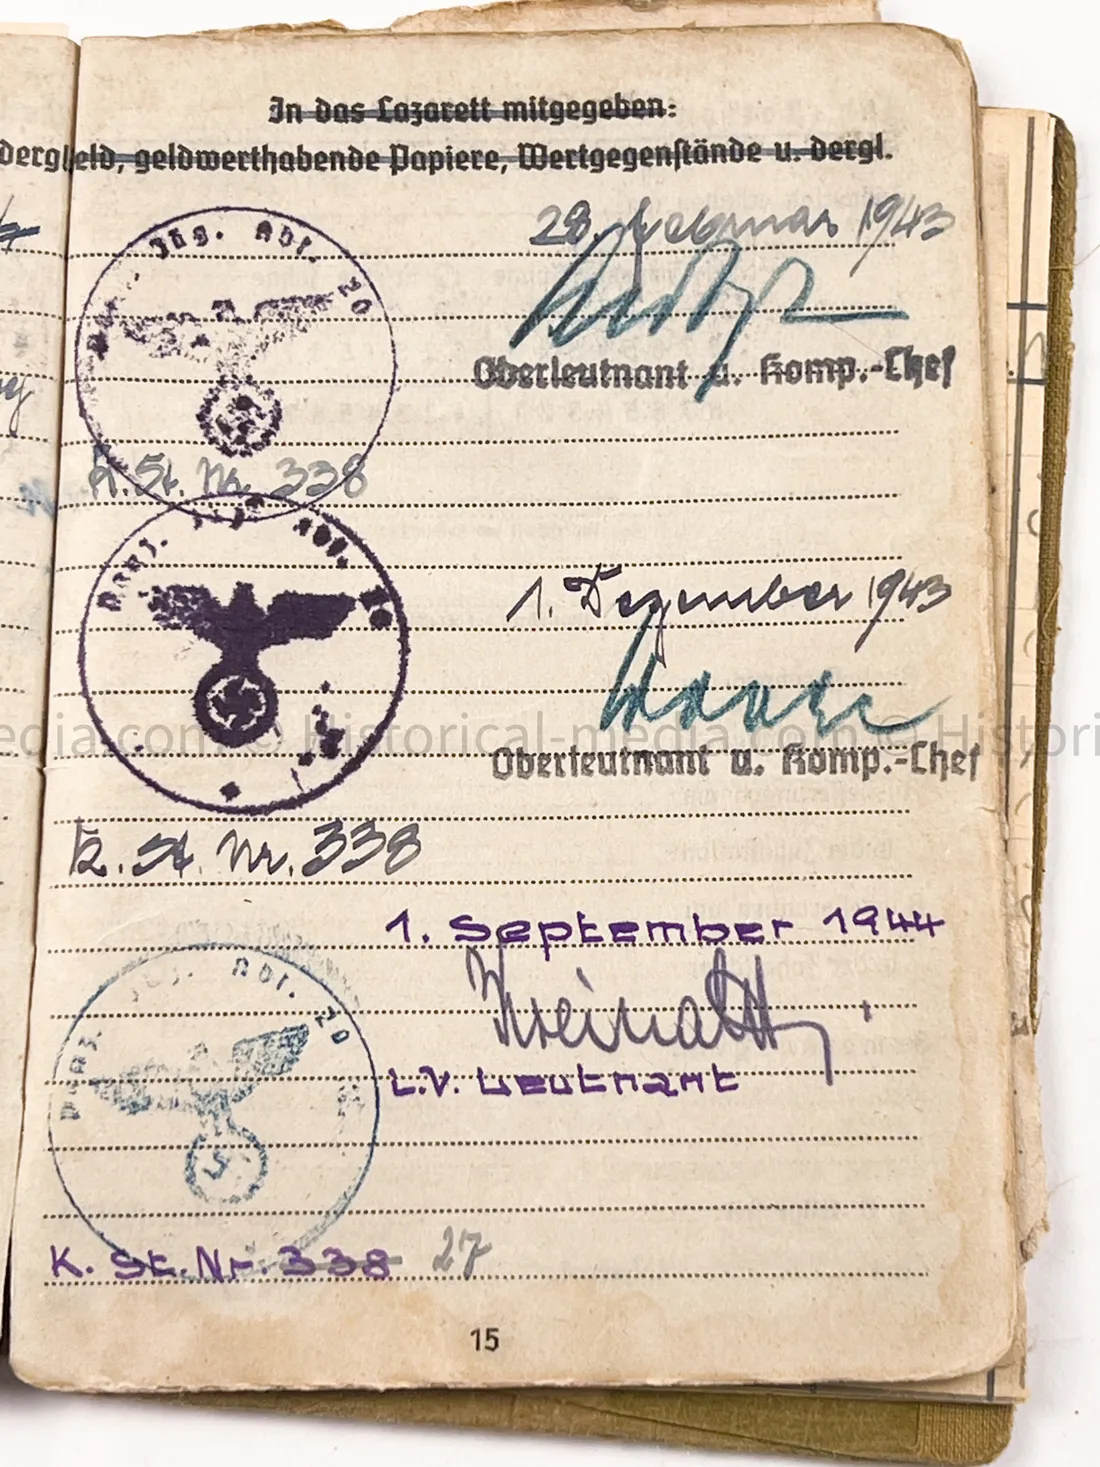 In das Lazarett mitgegeben:
dergl
eld, geldwerthabende Papiere, Wertgegenstände u. dergl.
Jäg. Abt. 20
28. Februar 1943
Oberleutnant u. Komp.-Chef
K. St. Nr. 338
Panz. Abt.
1. Dezember 1943
Oberleutnant u. Komp.-Chef
K. St. Nr. 338
© Historical-media.com © Histori
1. September 1944
Panz. Jäg. Abt. 20
I.V. Leutnant
K. St. Nr. 338 27
15